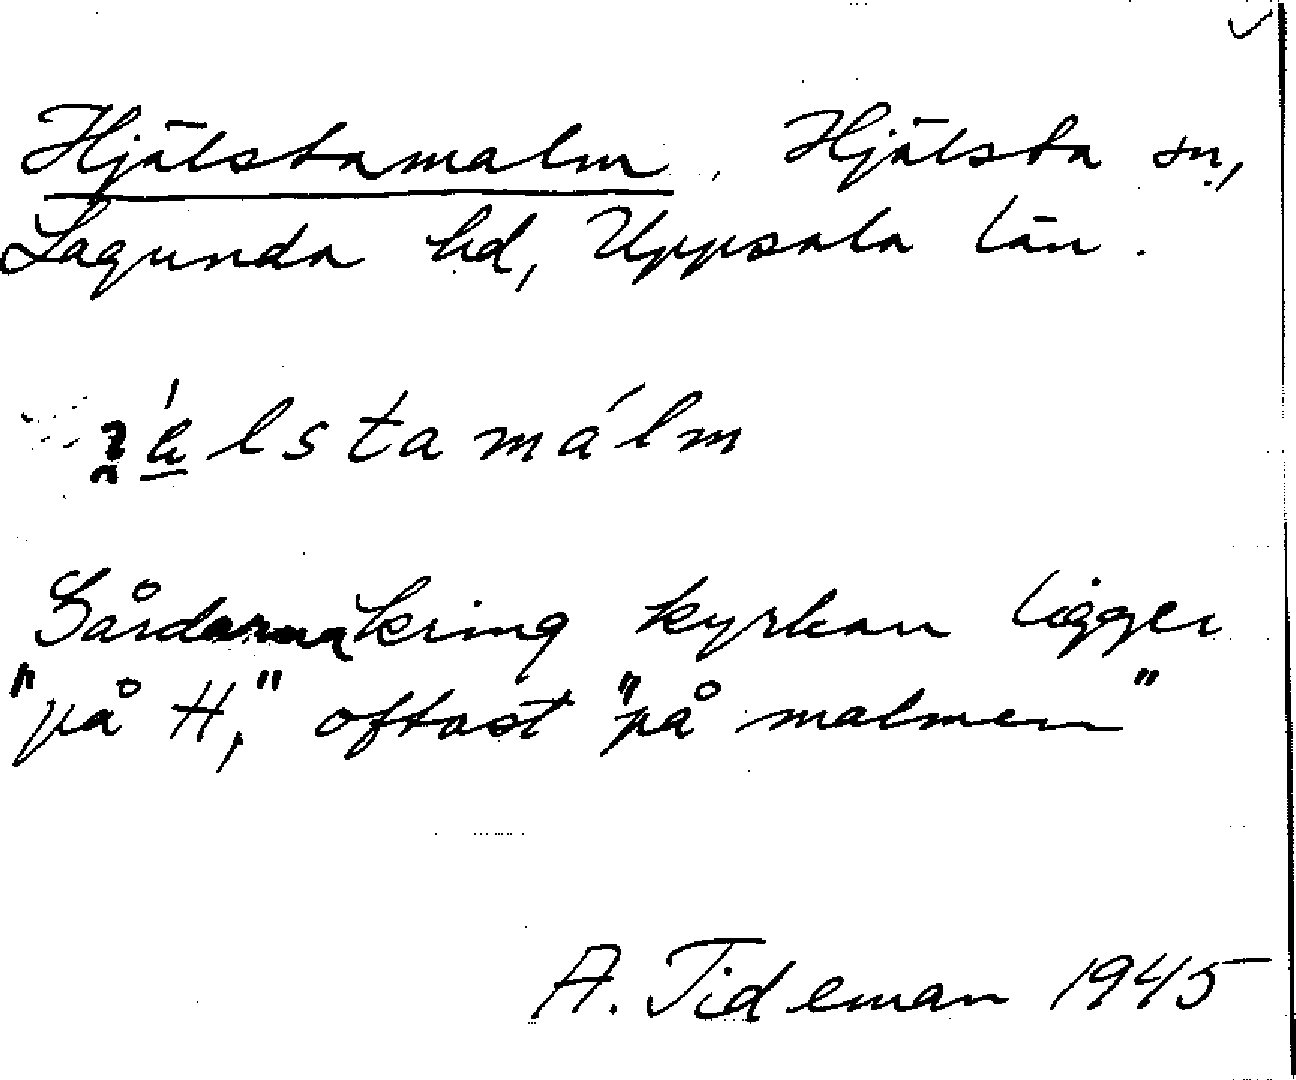 Hjälstamalm, Hjälsta sn,
Lagunda hd, Uppsala län.
lstamálm
Gårdarna kring kyrkan ligger
"på H," oftast "på malmen"
A. Tideman 1945